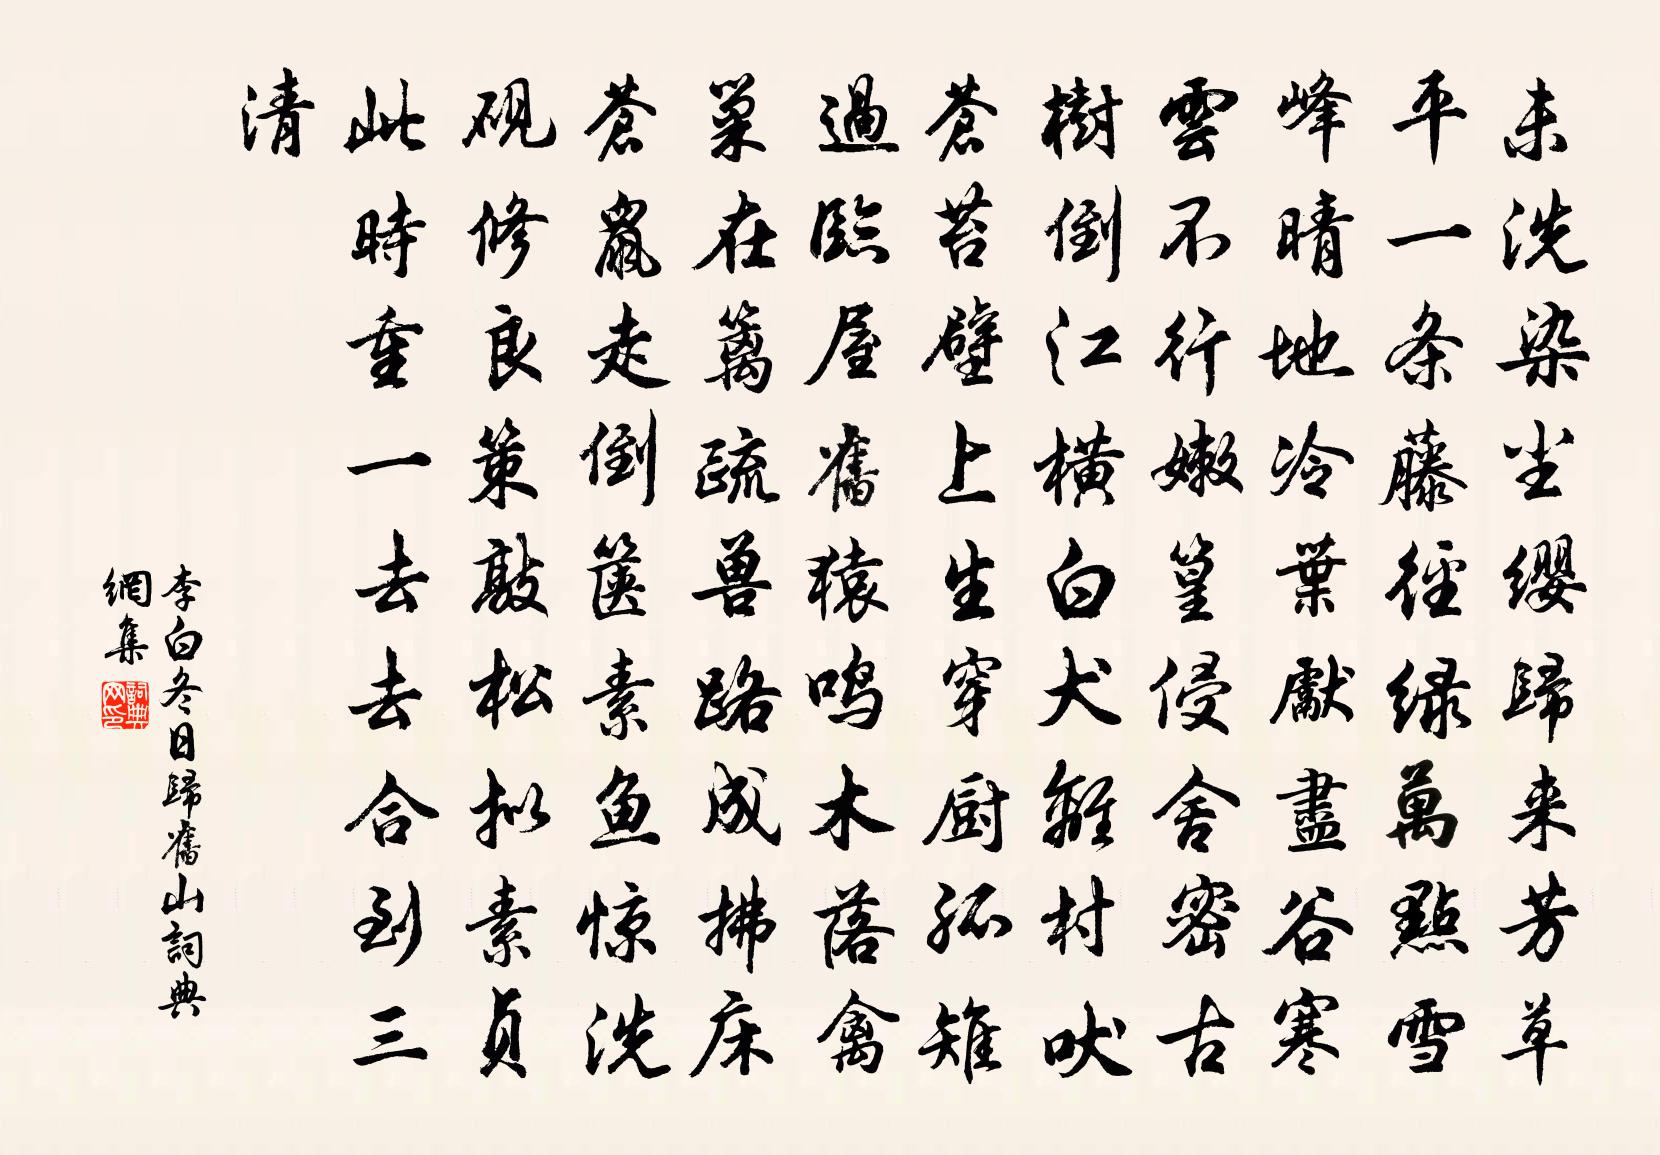 未洗染尘缨歸来芳草
平一条藤徑绿萬點雪
峰晴地冷葉厭盡谷寒
雲不行嫩篁侵舍密古
樹倒江横白犬離村吠
蒼苔壁上生穿厨孤雉
過臨屋舊猿鸣木落禽
巢在篱疏兽路成拂床
蒼鼠走倒箧素鱼惊洗
砚修良策敲松拟素貞
此時重一去去合到三
清
李白冬日歸舊山詞典
網集
詞典网印